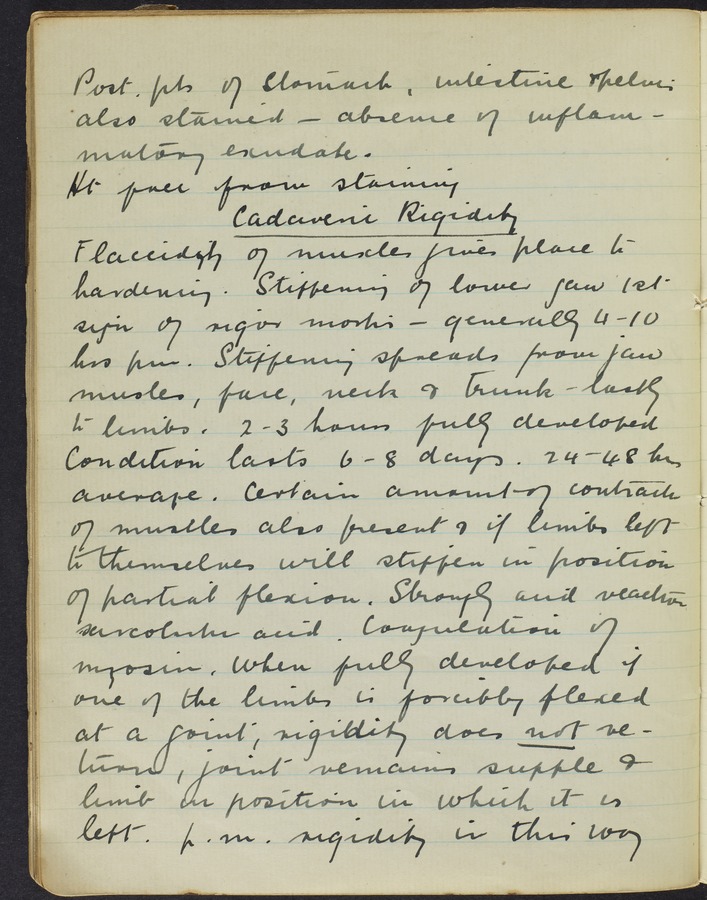 Post. pts of Stomach, intestine & pelvis
also stained – absence of inflam-
matory exudate.
Ht free from staining
Cadaveric Rigidity
Flaccidity of muscles gives place to
hardening. Stiffening of lower jaw 1st
sign of rigor mortis – generally 4-10
hrs pm. Stiffening spreads from jaw
muscles, face, neck & trunk – lastly
to limbs. 2-3 hours fully developed
Condition lasts 6-8 days. 24-48 hrs
average. Certain amount of contract
of muscles also present & if limbs left
to themselves will stiffen in position
of partial flexion. Strongly acid reaction
sarcolactic acid. Coagulation of
myosin. When fully developed if
one of the limbs is forcibly flexed
at a joint, rigidity does not re-
turn, joint remains supple &
limb in position in which it is
left. p.m. rigidity in this way